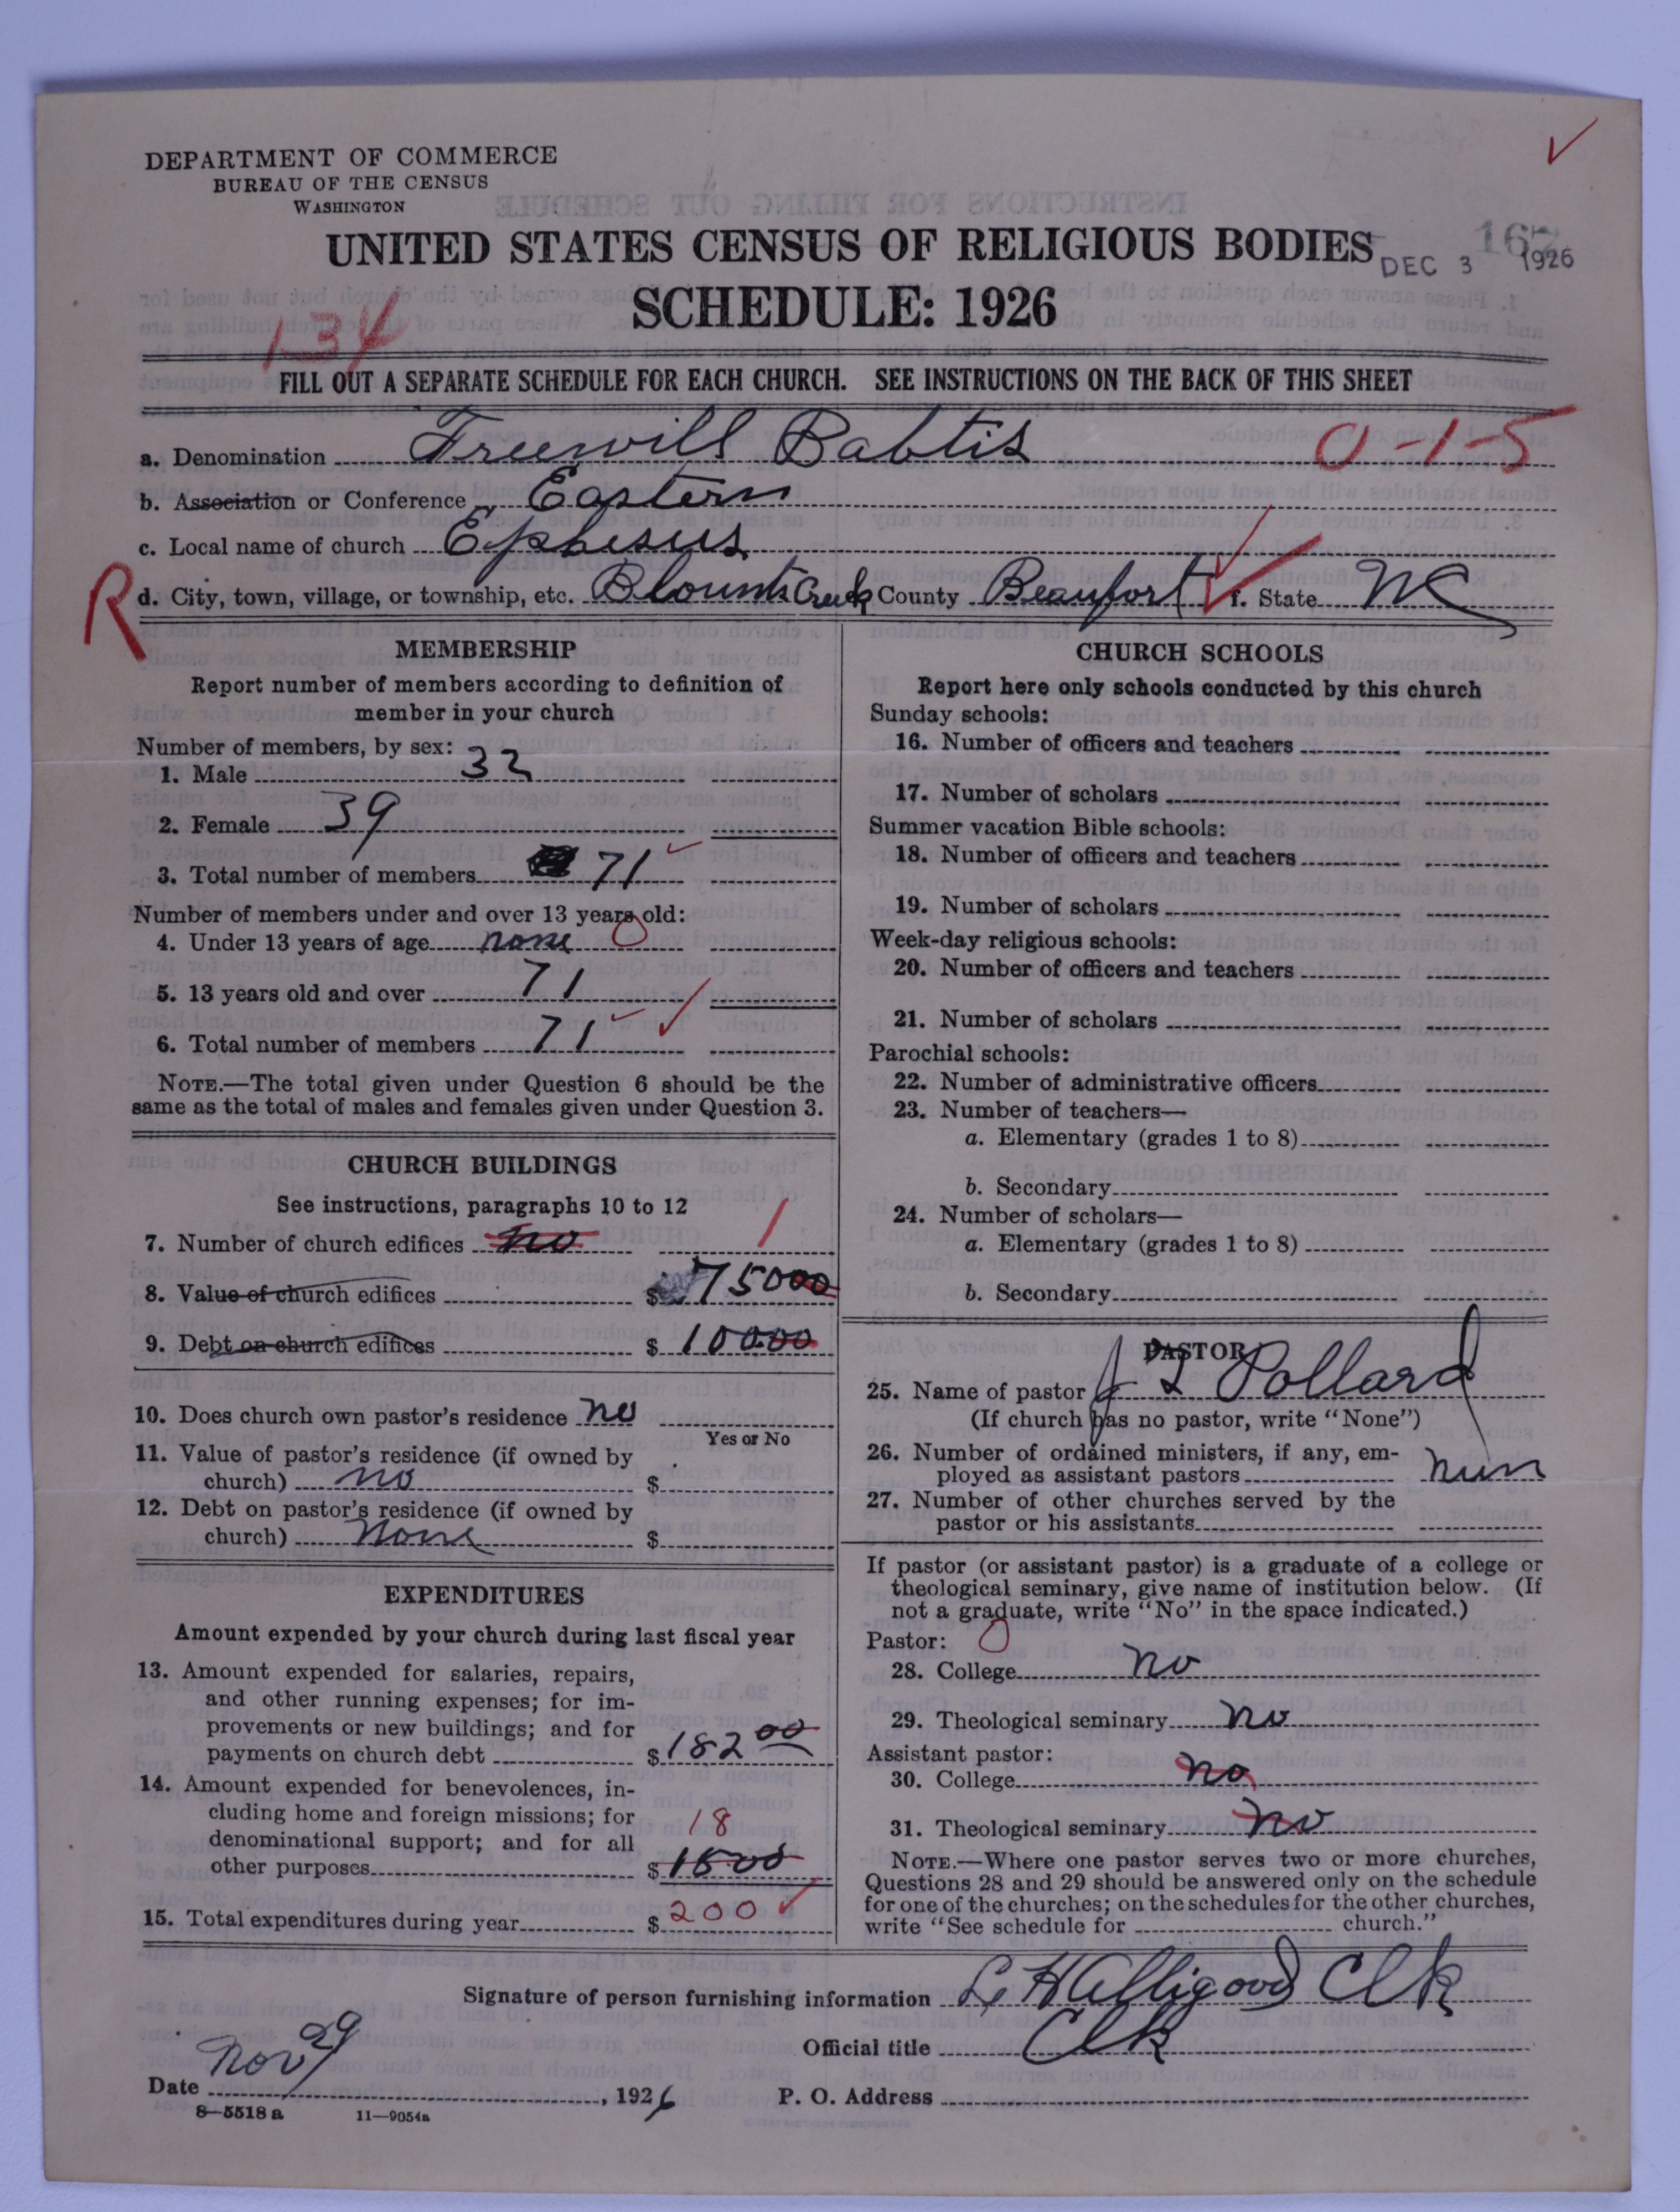 DEPARTMENT OF COMMERCE
BUREAU OF THE CENSUS
WASHINGTON
UNITED STATES CENSUS OF RELIGIOUS BODIES
DEC 3 1926
SCHEDULE: 1926
1-34
FILL OUT A SEPARATE SCHEDULE FOR EACH CHURCH. SEE INSTRUCTIONS ON THE BACK OF THIS SHEET
a. Denomination Freewill Babtis 0-1-5
b. Association or Conference Eastern
c. Local name of church Ephesus
R d. City, town, village, or township, etc. Blounts Creek County Beaufort f. State NC
MEMBERSHIP
Report number of members according to definition of
member in your church
Number of members, by sex:
1. Male 32
2. Female 39
3. Total number of members 71
Number of members under and over 13 years old:
4. Under 13 years of age none 0
5. 13 years old and over 71
6. Total number of members 71
NOTE.—The total given under Question 6 should be the
same as the total of males and females given under Question 3.
CHURCH BUILDINGS
See instructions, paragraphs 10 to 12
7. Number of church edifices no 1
8. Value of church edifices $ 75000
9. Debt on church edifices $ 10000
10. Does church own pastor's residence no
Yes or No
11. Value of pastor's residence (if owned by
church) no $
12. Debt on pastor's residence (if owned by
church) None $
EXPENDITURES
Amount expended by your church during last fiscal year
13. Amount expended for salaries, repairs,
and other running expenses; for im-
provements or new buildings; and for
payments on church debt $ 182 00
14. Amount expended for benevolences, in-
cluding home and foreign missions; for
denominational support; and for all 18
other purposes $
15. Total expenditures during year $ 200
CHURCH SCHOOLS
Report here only schools conducted by this church
Sunday schools:
16. Number of officers and teachers
17. Number of scholars
Summer vacation Bible schools:
18. Number of officers and teachers
19. Number of scholars
Week-day religious schools:
20. Number of officers and teachers
21. Number of scholars
Parochial schools:
22. Number of administrative officers
23. Number of teachers—
a. Elementary (grades 1 to 8)
b. Secondary
24. Number of scholars—
a. Elementary (grades 1 to 8)
b. Secondary
PASTOR
25. Name of pastor J L Pollard
(If church has no pastor, write "None")
26. Number of ordained ministers, if any, em-
ployed as assistant pastors nun
27. Number of other churches served by the
pastor or his assistants
If pastor (or assistant pastor) is a graduate of a college or
theological seminary, give name of institution below. (If
not a graduate, write "No" in the space indicated.)
Pastor: 0
28. College no
29. Theological seminary no
Assistant pastor:
30. College no
31. Theological seminary no
NOTE.—Where one pastor serves two or more churches,
Questions 28 and 29 should be answered only on the schedule
for one of the churches; on the schedules for the other churches,
write "See schedule for church."
Signature of person furnishing information L H Alligood Clk
Official title Clk
Date Nov 29, 1926 P. O. Address
8—5518 a 11—9054a